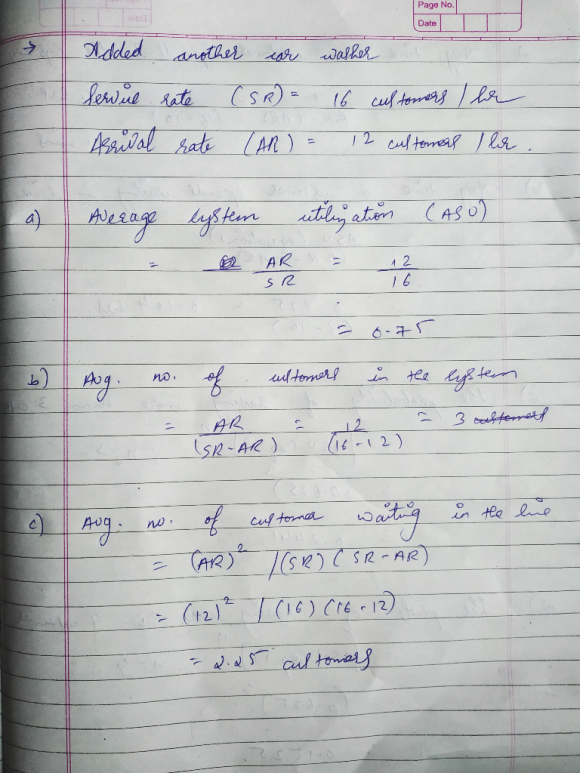 Page No.
Date
→ Added another car washer
Service rate (SR) = 16 customers / hr
Arrival rate (AR) = 12 customers / hr.
a) Average system utilization (ASU)
= AR / SR = 12 / 16
= 0.75
b) Avg. no. of customers in the system
= AR / (SR-AR) = 12 / (16-12) = 3 customers
c) Avg. no. of customer waiting in the line
= (AR)² / (SR) (SR-AR)
= (12)² / (16) (16-12)
= 2.25 customers